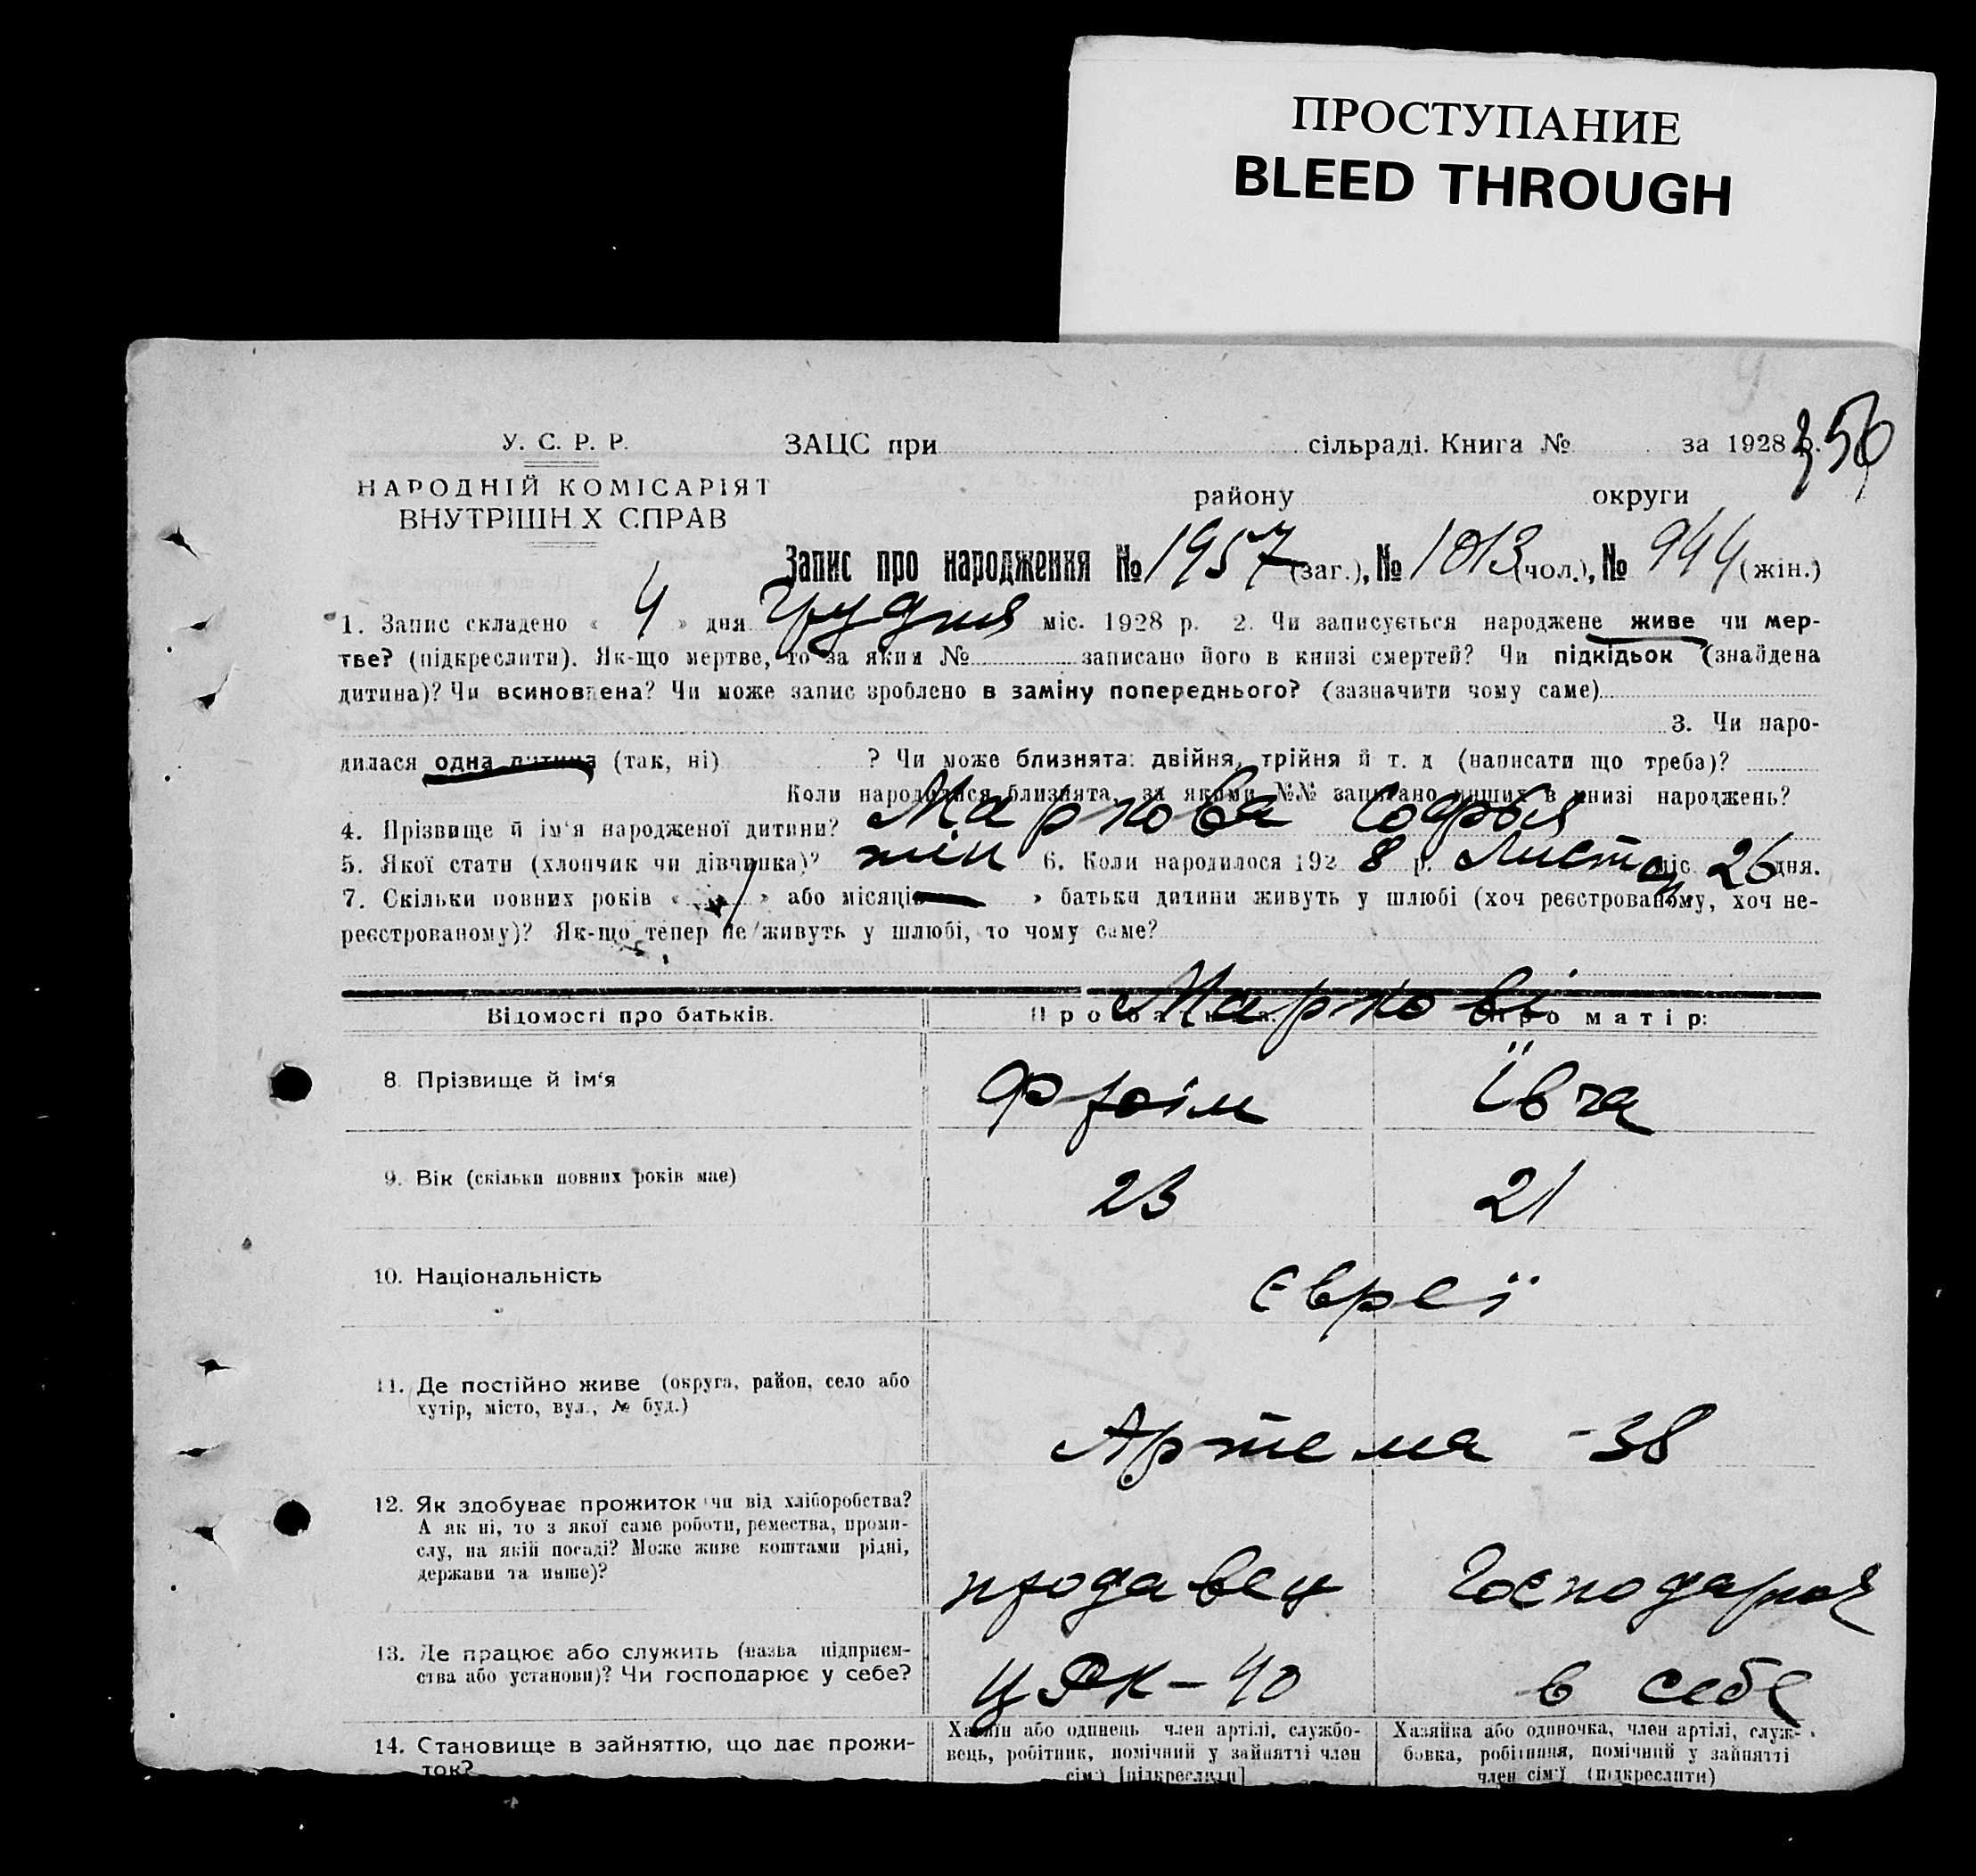 ПРОСТУПАНИЕ
BLEED THROUGH
356
У. С. Р. Р. ЗАЦС при сільраді. Книга № за 1928 р.
НАРОДНІЙ КОМІСАРІЯТ
ВНУТРІШН Х СПРАВ
району округи
Запис про народження № 1957 (заг.), № 1013 (чол.), № 944 (жін.)
1. Запис складено « 4 » дня Грудня міс. 1928 р. 2. Чи записується народжене живе чи мер-
тве? (підкреслити). Як-що мертве, то за яким № записано його в книзі смертей? Чи підкідьок (знайдена
дитина)? Чи всиновлена? Чи може запис зроблено в заміну попереднього? (зазначити чому саме)
3. Чи наро-
дилася одна дитина (так, ні) ? Чи може близнята: двійня, трійня й т. д (написати що треба)?
Коли народилися близнята, за якими №№ записано инших в книзі народжень?
4. Прізвище й ім'я народженої дитини? Маркова Софья
5. Якої стати (хлопчик чи дівчинка)? жін 6. Коли народилося 192 8 р. Листоп міс. 26 дня.
7. Скільки повних років « » або місяців » батьки дитини живуть у шлюбі (хоч реєстрованому, хоч не-
реєстрованому)? Як-що тепер не живуть у шлюбі, то чому саме?
Маркові
Відомості про батьків. Про батька Про матір:
8. Прізвище й ім'я Фроім Ївча
9. Вік (скільки повних років має) 23 21
10. Національність Євреї
11. Де постійно живе (округа, район, село або
хутір, місто, вул., № буд.)
Артема - 38
12. Як здобуває прожиток чи від хліборобства?
А як ні, то з якої саме роботи, ремества, проми-
слу, на якій посаді? Може живе коштами рідні,
держави та инше)?
продавец Господарка
13. Де працює або служить (назва підприєм-
ства або установи)? Чи господарює у себе?
ЦРК - 40 в себе
14. Становище в зайняттю, що дає прожи-
ток?
Хазяїн або одинець член артілі, службо-
вець, робітник, помічний у зайнятті член
сім'ї [підкреслити]
Хазяйка або одиночка, член артілі, служ-
бовка, робітниця, помічний у зайнятті
член сім'ї (підкреслити)